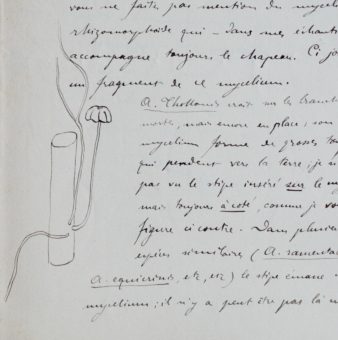 vous ne faites pas mention du mycel
rhizomorphoïde qui – dans mes échanti
accompagne toujours le chapeau. Ci jo
un fragment de ce mycelium.
A. Thollonis croit sur les branch
mortes, mais encore en place; son
mycelium forme de grosses tou
qui pendent vers la terre; je n
pas vu le stipe inséré sur le my
mais toujours à coté, comme je vo
figure ci contre. Dans plusieu
espèces similaires (A. ramental
A. equicrinis, etc, etc) le stipe émane
mycelium; il n'y a peut être pas là u